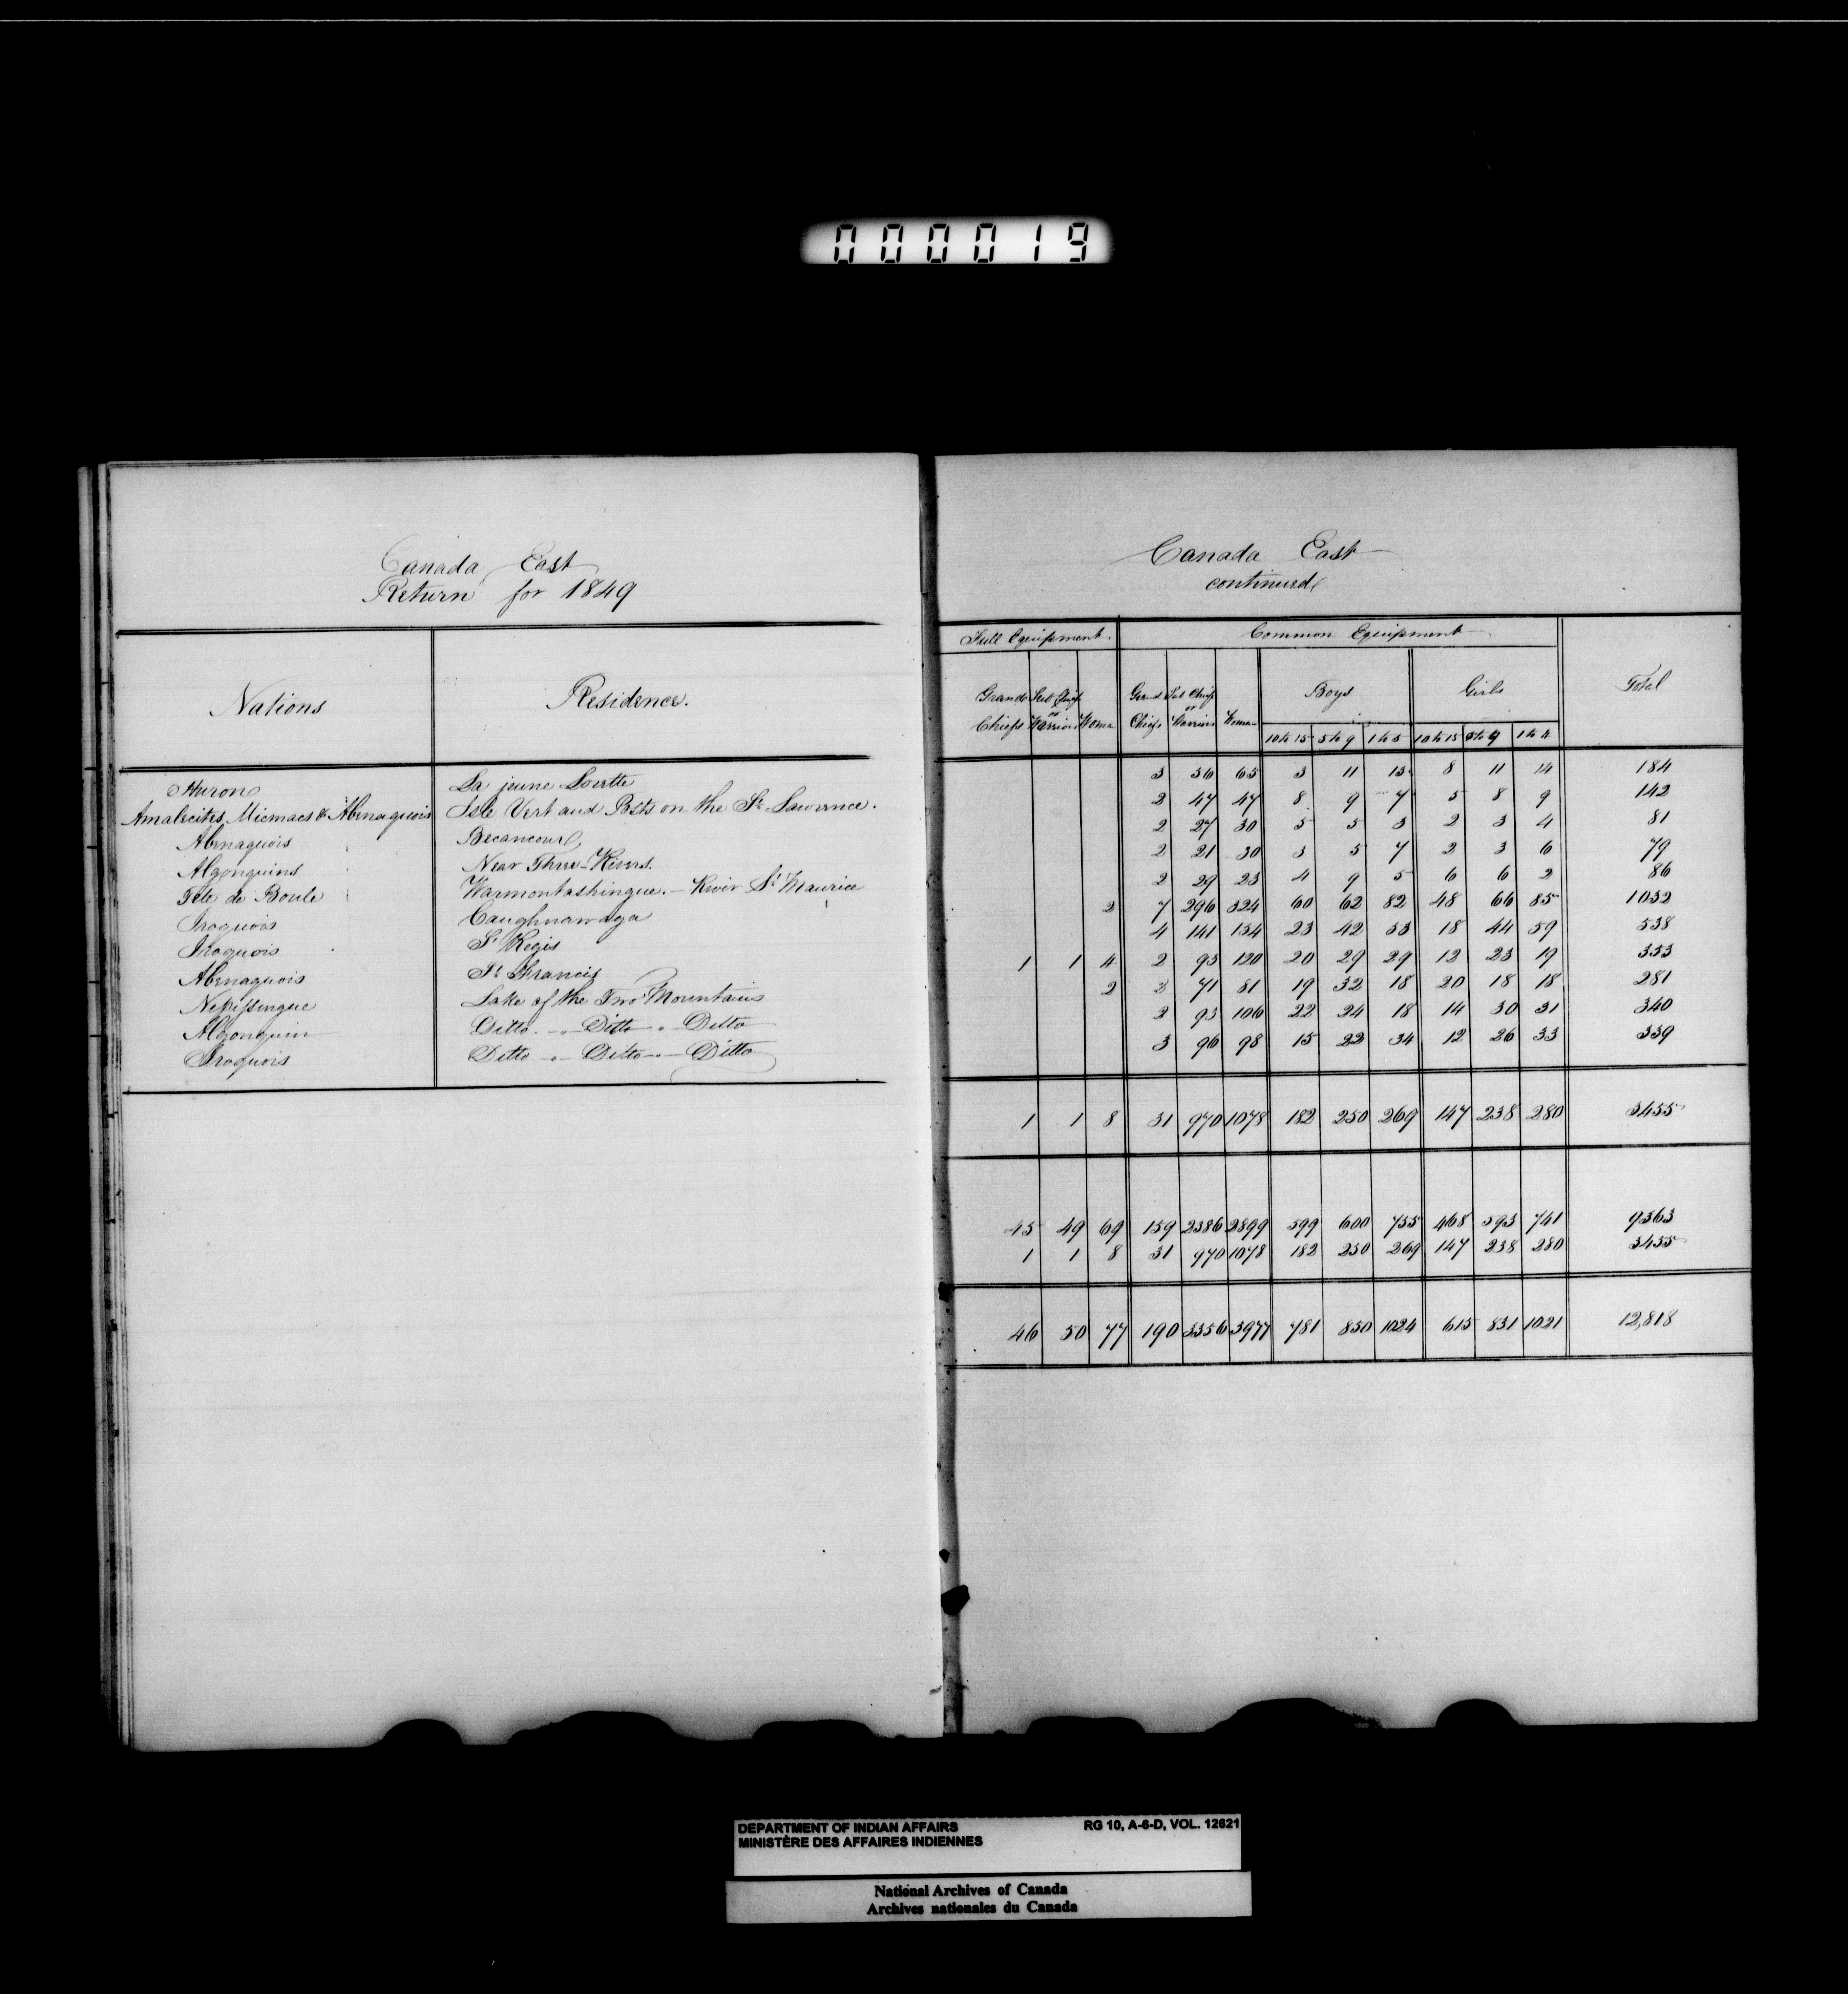 000019
Canada East
Return for 1849
Nations Residence.
Huron La jeune Lorette
Amalecites, Micmacs & Abenaquois Isle Vert and Posts on the St. Lawrence.
Abenaquois Becancour
Algonquins Near Three-Rivers.
Tête de Boule Warmontashingue. - River St Maurice
Iroquois Caughnawaga
Iroquois St Regis
Abenaquois St. Francis
Nepissingue Lake of the Two Mountains
Algonquin Ditto. - " - Ditto - " - Ditto
Iroquois Ditto - " - Ditto - " - Ditto
Canada East
continued
Full Equipment. Common Equipment
Grand Chiefs Sub Chiefs or Warriors Women Grand Chiefs Sub Chiefs or Warriors Women Boys Girls Total
10 to 15 5 to 9 1 to 5 10 to 15 5 to 9 1 to 4
3 56 65 3 11 13 8 11 14 184
2 47 47 8 9 7 5 8 9 142
2 27 30 5 5 3 2 3 4 81
2 21 30 3 5 7 2 3 6 79
2 29 23 4 9 5 6 6 2 86
2 7 296 324 60 62 82 48 66 85 1032
4 141 154 23 42 53 18 44 59 538
1 1 4 2 93 120 20 29 29 12 23 19 353
2 2 71 81 19 32 18 20 18 18 281
2 93 106 22 24 18 14 30 31 340
3 96 98 15 22 34 12 26 33 339
1 1 8 31 970 1078 182 250 269 147 238 280 3455
45 49 69 159 2386 2899 599 600 755 468 593 741 9363
1 1 8 31 970 1078 182 250 269 147 238 280 3455
46 50 77 190 3356 3977 781 850 1024 615 831 1021 12,818
DEPARTMENT OF INDIAN AFFAIRS RG 10, A-6-D, VOL. 12621
MINISTÈRE DES AFFAIRES INDIENNES
National Archives of Canada
Archives nationales du Canada